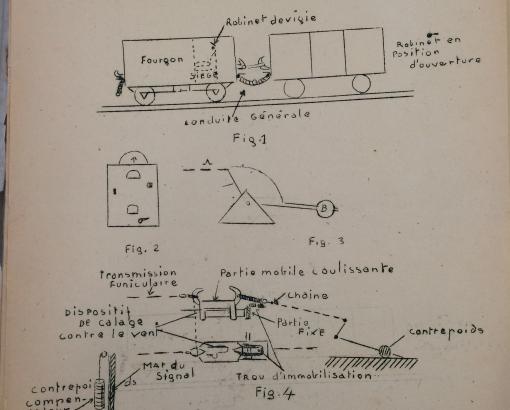 Robinet de vigie
Fourgon
SIEGE
Robinet en
Position
d'ouverture
Conduite Générale
Fig.1
B
Fig. 2
Fig. 3
Transmission
Funiculaire
Partie mobile Coulissante
Chaine
DISPOSITIF
DE Calage
Contre le vent
Partie
Fixe
Contrepoids
Mat du
Signal
Trou d'immobilisation
Fig.4
Contrepoi ds